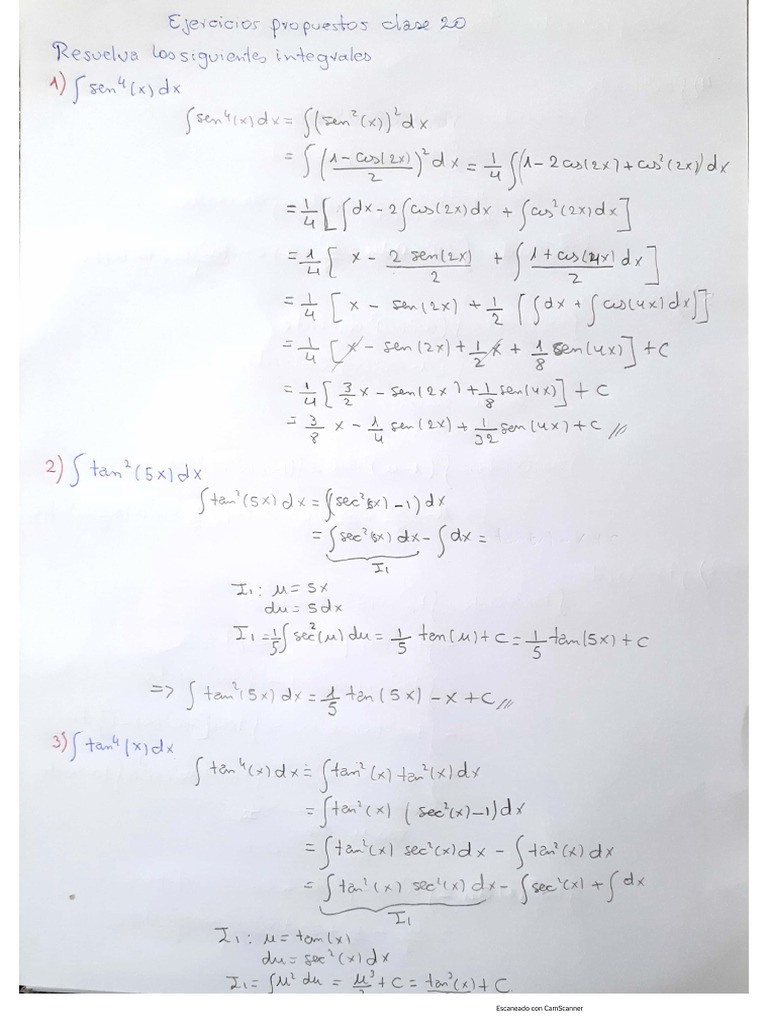 Ejercicios propuestos clase 20
Resuelva los siguientes integrales
1) ∫ sen⁴(x) dx
∫ sen⁴(x) dx = ∫ (sen²(x))² dx
= ∫ ((1 − cos(2x))/2)² dx = 1/4 ∫ (1 − 2 cos(2x) + cos²(2x)) dx
= 1/4 [ ∫ dx − 2 ∫ cos(2x) dx + ∫ cos²(2x) dx ]
= 1/4 [ x − 2 sen(2x)/2 + ∫ (1 + cos(4x))/2 dx ]
= 1/4 [ x − sen(2x) + 1/2 [ ∫ dx + ∫ cos(4x) dx ] ]
= 1/4 [ x − sen(2x) + 1/2 x + 1/8 sen(4x) ] + C
= 1/4 [ 3/2 x − sen(2x) + 1/8 sen(4x) ] + C
= 3/8 x − 1/4 sen(2x) + 1/32 sen(4x) + C //
2) ∫ tan²(5x) dx
∫ tan²(5x) dx = ∫ (sec²(5x) − 1) dx
= ∫ sec²(5x) dx − ∫ dx =
I₁
I₁ : u = 5x
du = 5 dx
I₁ = 1/5 ∫ sec²(u) du = 1/5 tan(u) + C = 1/5 tan(5x) + C
=> ∫ tan²(5x) dx = 1/5 tan(5x) − x + C //
3) ∫ tan⁴(x) dx
∫ tan⁴(x) dx = ∫ tan²(x) tan²(x) dx
= ∫ tan²(x) (sec²(x) − 1) dx
= ∫ tan²(x) sec²(x) dx − ∫ tan²(x) dx
= ∫ tan²(x) sec²(x) dx − ∫ sec²(x) + ∫ dx
I₁
I₁ : u = tan(x)
du = sec²(x) dx
I₁ = ∫ u² du = u³/3 + C = tan³(x) + C
Escaneado con CamScanner